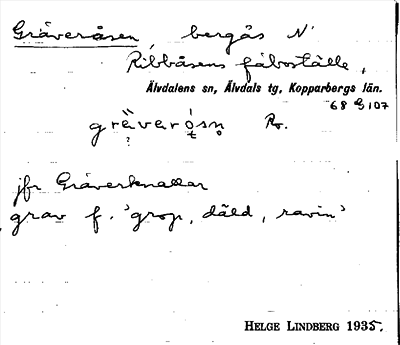 Gräveråsen, bergås N
Ribbåsens fäboställe,
Älvdalens sn, Älvdals tg, Kopparbergs län.
68 G 107
jfr Gräverknallar
grav f. 'grop, däld, ravin'
HELGE LINDBERG 1935.